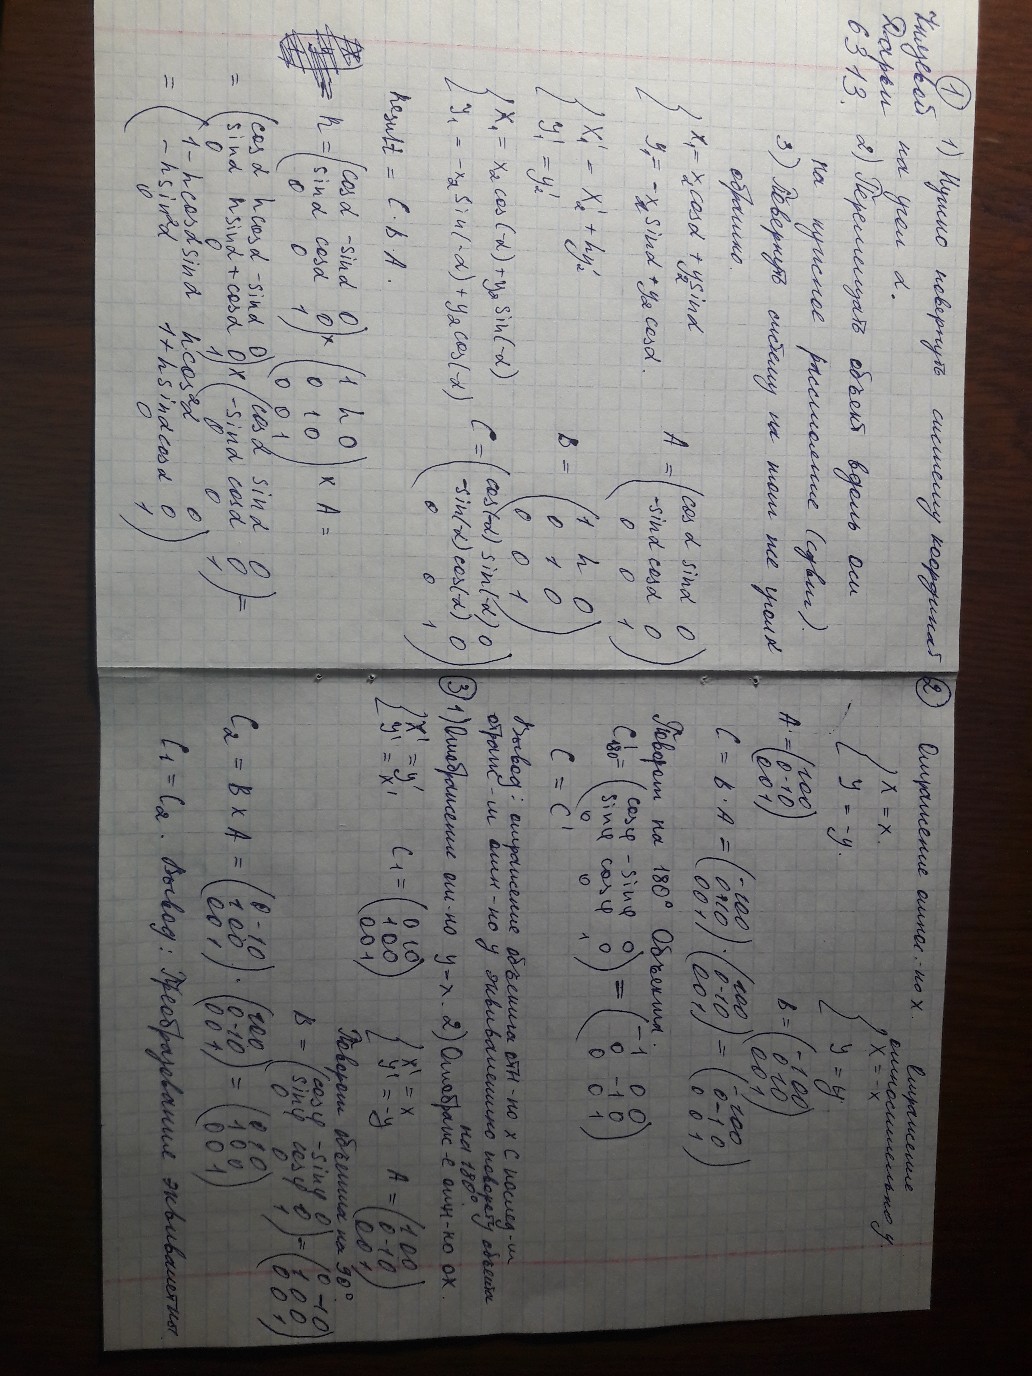 ① 1) Нужно повернуть систему координат
на угол α.
6313. 2) Переместить объект вдоль оси
на нужное расстояние (сдвиг).
3) Повернуть систему на тот же угол
обратно.
{ x₁ = x₂cosα + y₂sinα
y₁ = -x₂sinα + y₂cosα.
A = ( cosα sinα 0
-sinα cosα 0
0 0 1 )
{ x₁' = x₂' + hy₂'
y₁' = y₂'
B = ( 1 h 0
0 1 0
0 0 1 )
{ x₁ = x₂cos(-α) + y₂sin(-α)
y₁ = -x₂sin(-α) + y₂cos(-α)
C = ( cos(-α) sin(-α) 0
-sin(-α) cos(-α) 0
0 0 1 )
Result = C · B · A.
R = ( cosα -sinα 0
sinα cosα 0
0 0 1 ) × ( 1 h 0
0 1 0
0 0 1 ) × A =
= ( cosα hcosα - sinα 0
sinα hsinα + cosα 0
0 0 1 ) × ( cosα sinα 0
-sinα cosα 0
0 0 1 ) =
= ( 1 - hcosαsinα hcos²α 0
-hsin²α 1 + hsinαcosα 0
0 0 1 )
② Отражение относ.-но x.
{ x = x.
y = -y.
Отражение
относительно y.
{ x = -x
y = y
A = ( 1 0 0
0 -1 0
0 0 1 )
B = ( -1 0 0
0 1 0
0 0 1 )
C = B · A = ( -1 0 0
0 1 0
0 0 1 ) · ( 1 0 0
0 -1 0
0 0 1 ) = ( -1 0 0
0 -1 0
0 0 1 )
Поворот на 180° Объекта.
C'₁₈₀° = ( cosφ -sinφ 0
sinφ cosφ 0
0 0 1 ) = ( -1 0 0
0 -1 0
0 0 1 )
C = C'
Вывод: отражение объекта отн-но x с послед-м
отраж-м отн-но y эквивалентно повороту объекта
на 180°
③ 1) Отображение отн-но y = x. 2) Отображ-е отн-но ox.
{ x' = y'
y' = x'
C₁ = ( 0 1 0
1 0 0
0 0 1 )
{ x' = x
y' = -y
A = ( 1 0 0
0 -1 0
0 0 1 )
Поворот объекта на 90°.
B = ( cosφ -sinφ 0
sinφ cosφ 0
0 0 1 ) = ( 0 -1 0
1 0 0
0 0 1 )
C₂ = B × A = ( 0 -1 0
1 0 0
0 0 1 ) · ( 1 0 0
0 -1 0
0 0 1 ) = ( 0 1 0
1 0 0
0 0 1 )
C₁ = C₂. Вывод: Преобразование эквивалентны.